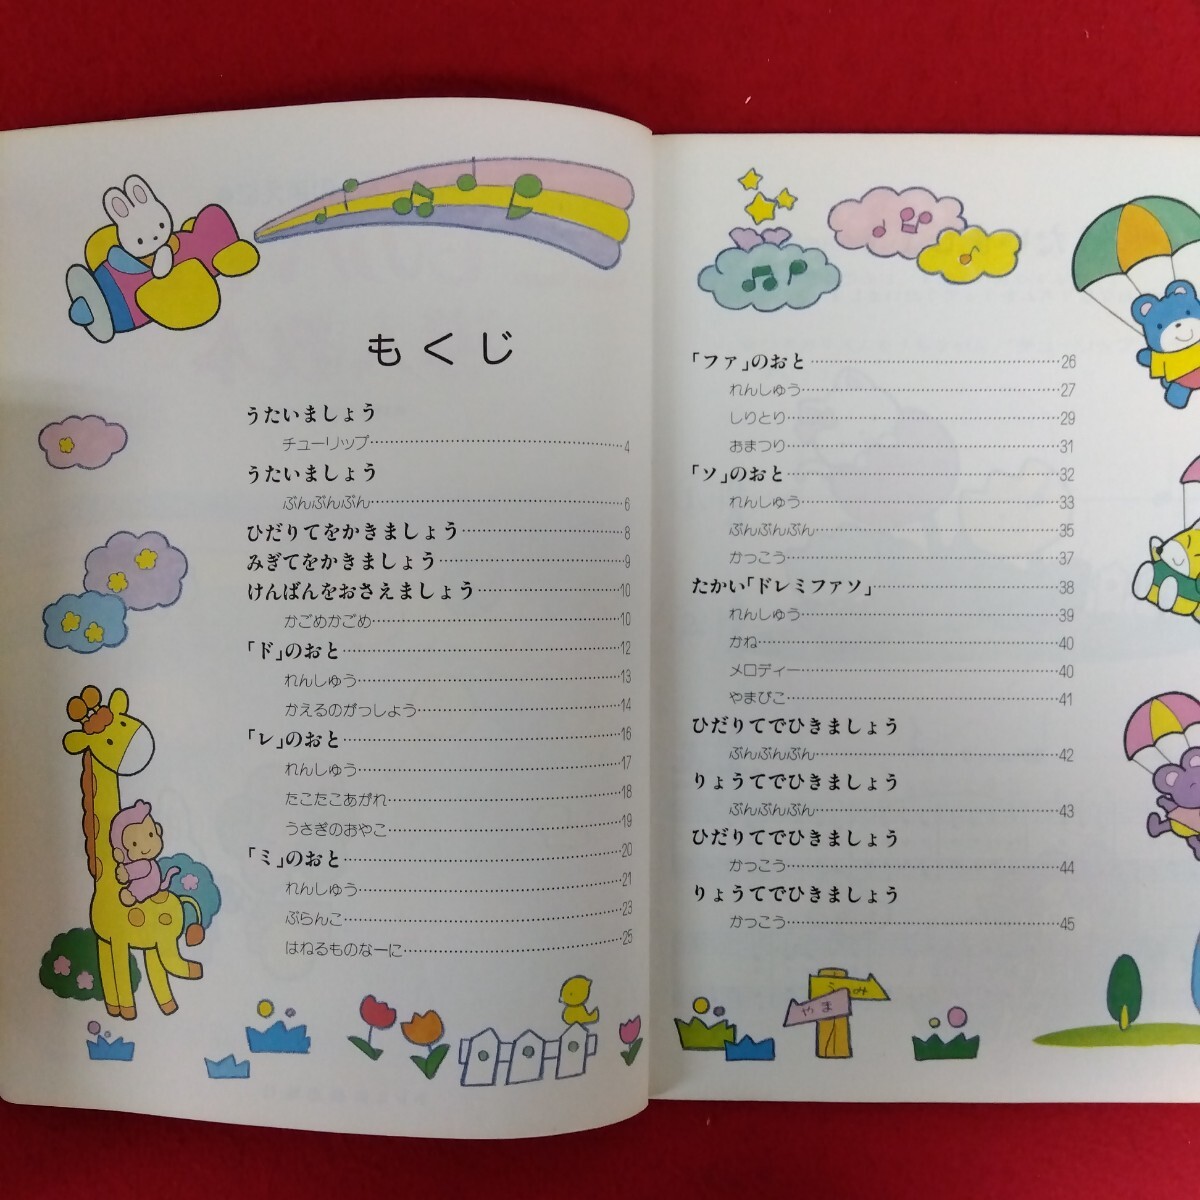 もくじ
うたいましょう
チューリップ……4
うたいましょう
ぶんぶんぶん……6
ひだりてをかきましょう……8
みぎてをかきましょう……9
けんばんをおさえましょう……10
かごめかごめ……10
「ド」のおと……12
れんしゅう……13
かえるのがっしょう……14
「レ」のおと……16
れんしゅう……17
たこたこあがれ……18
うさぎのおやこ……19
「ミ」のおと……20
れんしゅう……21
ぶらんこ……23
はねるものなーに……25
「ファ」のおと……26
れんしゅう……27
しりとり……29
おまつり……31
「ソ」のおと……32
れんしゅう……33
ぶんぶんぶん……35
かっこう……37
たかい「ドレミファソ」……38
れんしゅう……39
かね……40
メロディー……40
やまびこ……41
ひだりてでひきましょう
ぶんぶんぶん……42
りょうてでひきましょう
ぶんぶんぶん……43
ひだりてでひきましょう
かっこう……44
りょうてでひきましょう
かっこう……45
うみ
やま